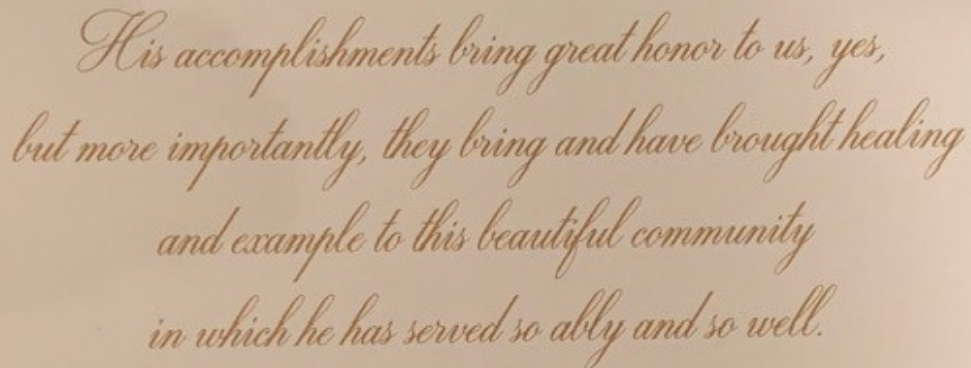 His accomplishments bring great honor to us, yes,
but more importantly, they bring and have brought healing
and example to this beautiful community
in which he has served so ably and so well.